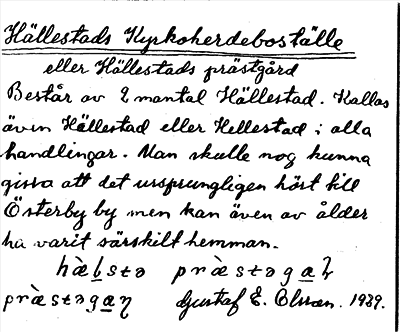 Hällestads Kyrkoherdeboställe
eller Hällestads prästgård
Består av 2 mantal Hällestad. Kallas
även Hällestad eller Hellestad i alla
handlingar. Man skulle nog kunna
gissa att det ursprungligen hört till
Österby by men kan även av ålder
ha varit särskilt hemman.
hæ̀lstə præ̀stəgaɳ
præ̀stəgaɳ Gustaf E. Olsson. 1929.